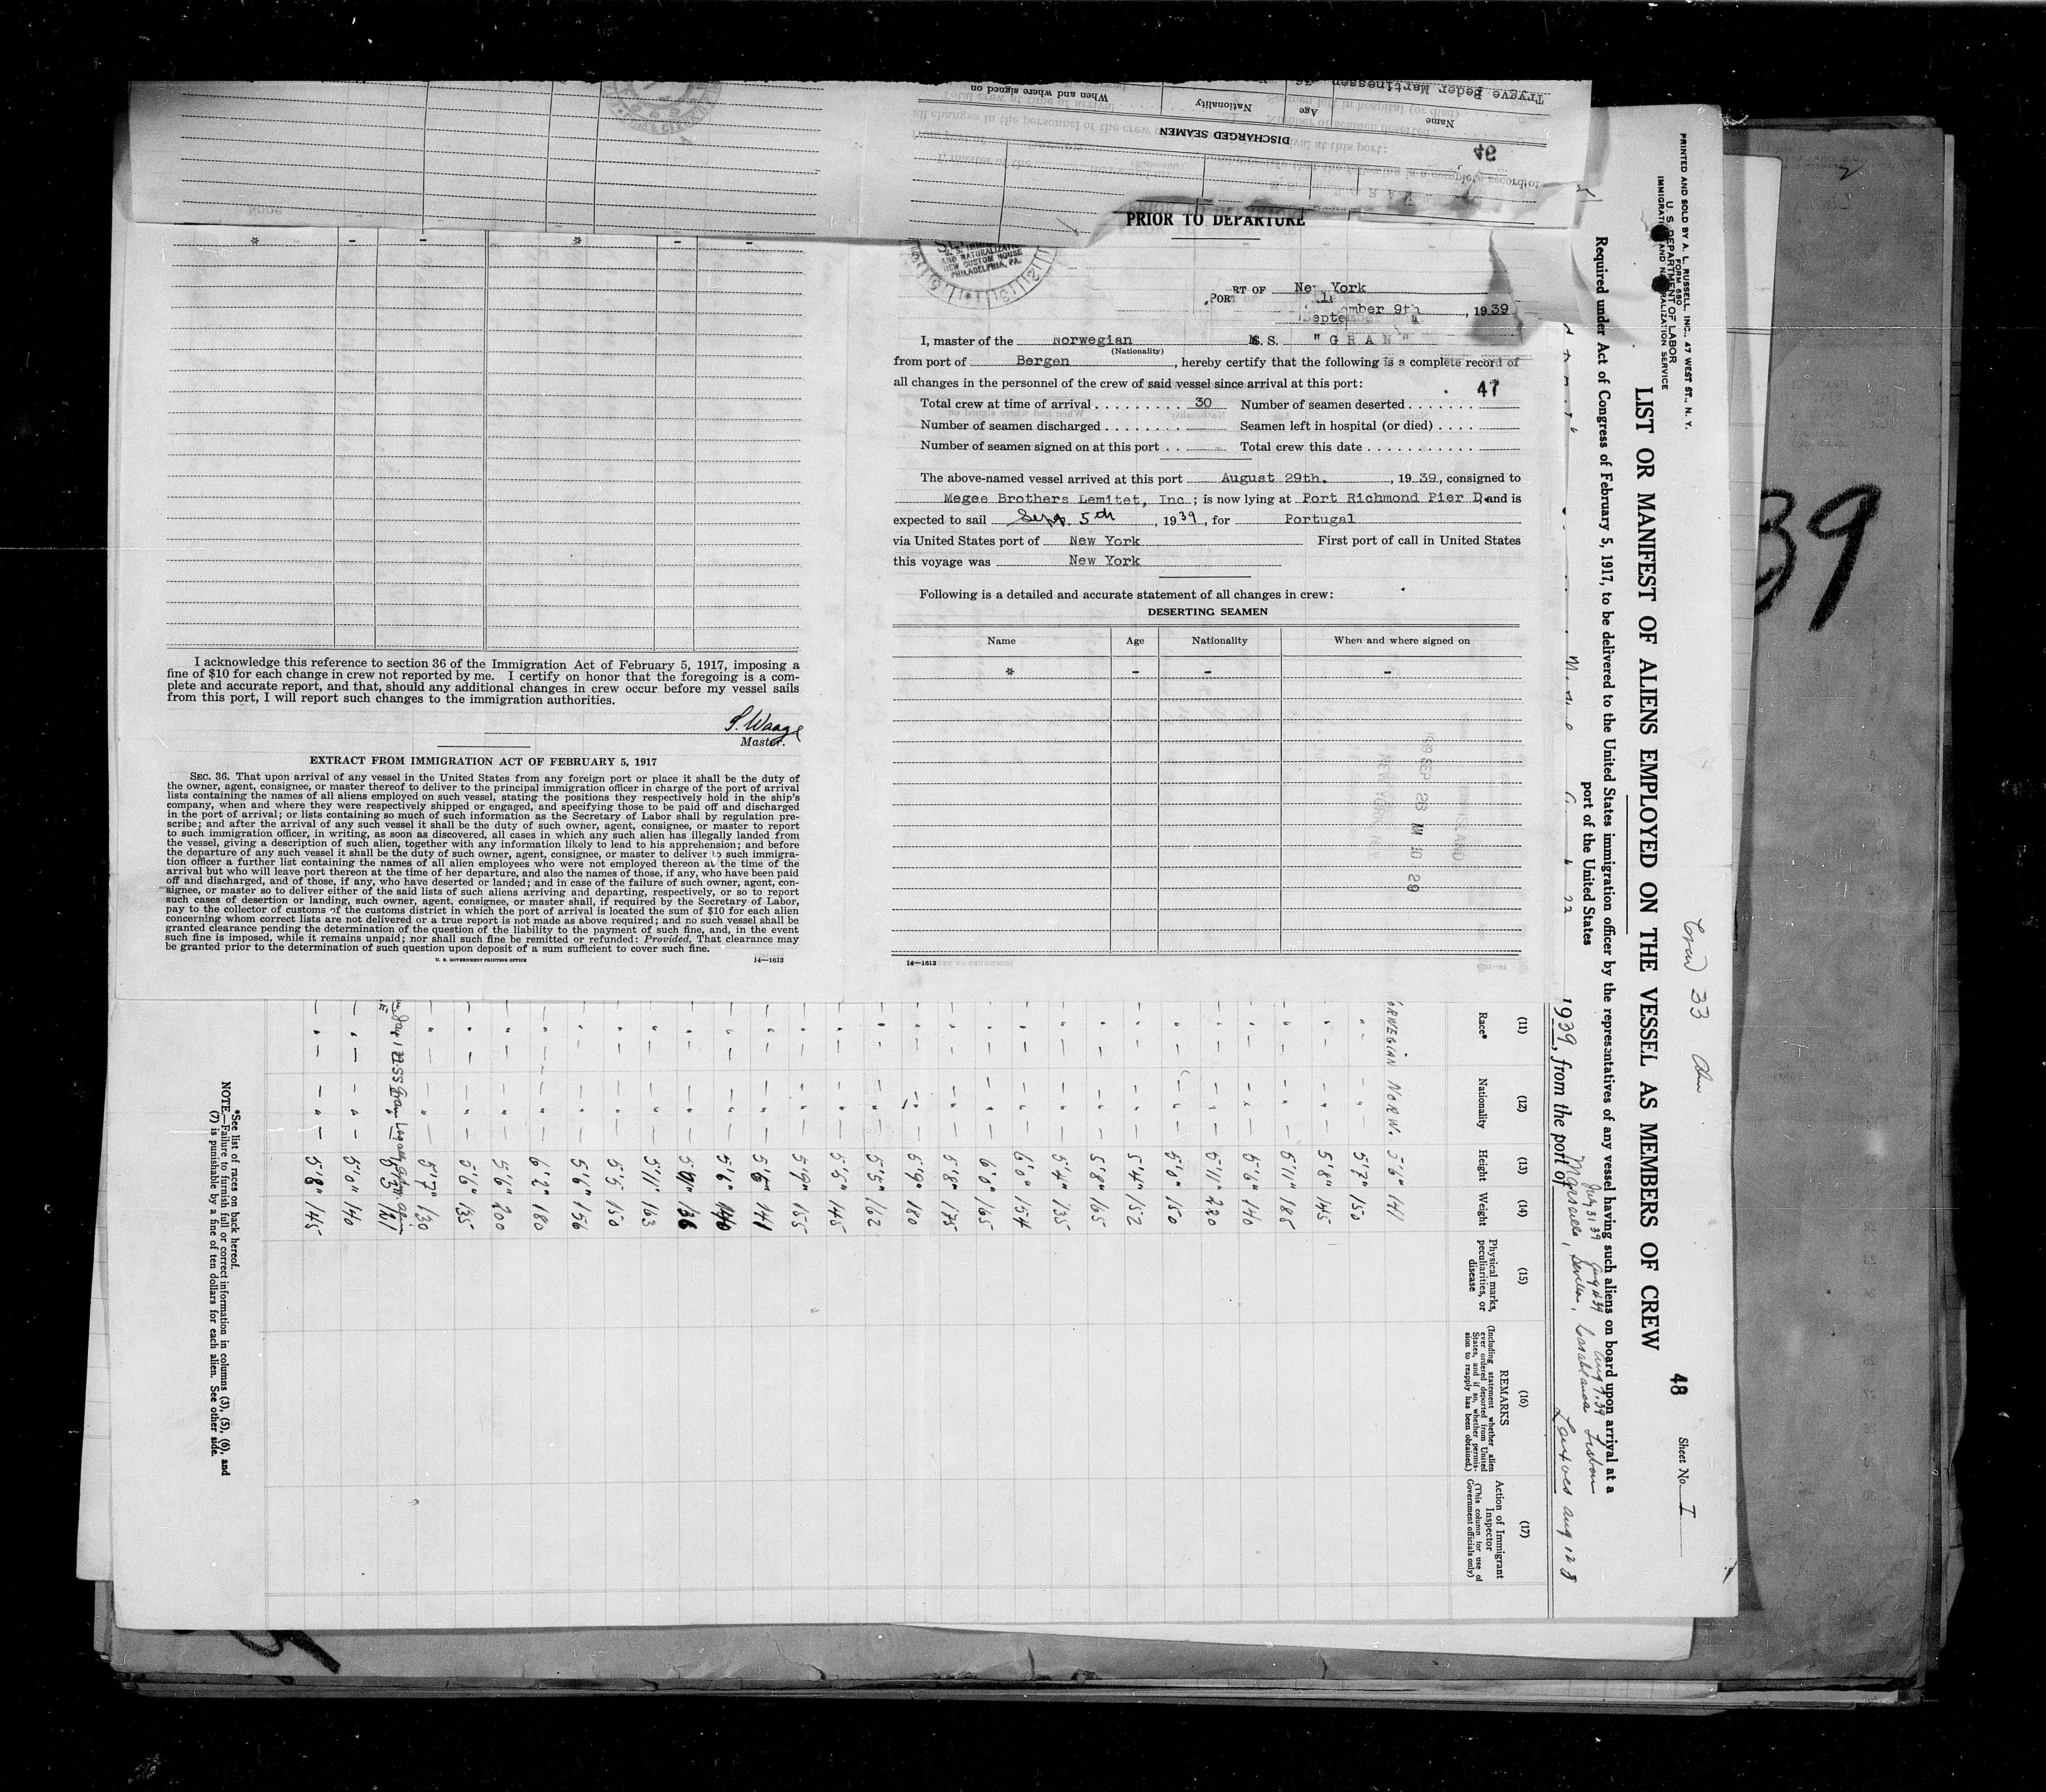 Trygve Peder Martinessen
Name
Age
Nationality
When and where signed on
DISCHARGED SEAMEN
46
PRIOR TO DEPARTURE
AND NATURALIZATION
NEW CUSTOM HOUSE
PHILADELPHIA, PA.
PORT OF New York
September 9th, 1939
I, master of the Norwegian M.S. "GRAN"
(Nationality)
from port of Bergen, hereby certify that the following is a complete record of
all changes in the personnel of the crew of said vessel since arrival at this port:
47
Total crew at time of arrival . . . . . . . . . 30 Number of seamen deserted . . . . . . .
Number of seamen discharged . . . . . . . . Seamen left in hospital (or died) . . . .
Number of seamen signed on at this port . . Total crew this date . . . . . . . . . . .
The above-named vessel arrived at this port August 29th., 1939, consigned to
Megee Brothers Lemitet, Inc; is now lying at Port Richmond Pier D, and is
expected to sail Sept. 5th, 1939, for Portugal
via United States port of New York First port of call in United States
this voyage was New York
Following is a detailed and accurate statement of all changes in crew:
DESERTING SEAMEN
Name Age Nationality When and where signed on
* - - -
14—1613
* - - * - -
I acknowledge this reference to section 36 of the Immigration Act of February 5, 1917, imposing a
fine of $10 for each change in crew not reported by me. I certify on honor that the foregoing is a com-
plete and accurate report, and that, should any additional changes in crew occur before my vessel sails
from this port, I will report such changes to the immigration authorities.
S. Waage
Master.
EXTRACT FROM IMMIGRATION ACT OF FEBRUARY 5, 1917
SEC. 36. That upon arrival of any vessel in the United States from any foreign port or place it shall be the duty of
the owner, agent, consignee, or master thereof to deliver to the principal immigration officer in charge of the port of arrival
lists containing the names of all aliens employed on such vessel, stating the positions they respectively hold in the ship's
company, when and where they were respectively shipped or engaged, and specifying those to be paid off and discharged
in the port of arrival; or lists containing so much of such information as the Secretary of Labor shall by regulation pre-
scribe; and after the arrival of any such vessel it shall be the duty of such owner, agent, consignee, or master to report
to such immigration officer, in writing, as soon as discovered, all cases in which any such alien has illegally landed from
the vessel, giving a description of such alien, together with any information likely to lead to his apprehension; and before
the departure of any such vessel it shall be the duty of such owner, agent, consignee, or master to deliver to such immigra-
tion officer a further list containing the names of all alien employees who were not employed thereon at the time of the
arrival but who will leave port thereon at the time of her departure, and also the names of those, if any, who have been paid
off and discharged, and of those, if any, who have deserted or landed; and in case of the failure of such owner, agent, con-
signee, or master so to deliver either of the said lists of such aliens arriving and departing, respectively, or so to report
such cases of desertion or landing, such owner, agent, consignee, or master shall, if required by the Secretary of Labor,
pay to the collector of customs of the customs district in which the port of arrival is located the sum of $10 for each alien
concerning whom correct lists are not delivered or a true report is not made as above required; and no such vessel shall be
granted clearance pending the determination of the question of the liability to the payment of such fine, and, in the event
such fine is imposed, while it remains unpaid; nor shall such fine be remitted or refunded: Provided, That clearance may
be granted prior to the determination of such question upon deposit of a sum sufficient to cover such fine.
U. S. GOVERNMENT PRINTING OFFICE 14—1613
PRINTED AND SOLD BY A. L. RUSSELL, INC., 47 WEST ST., N. Y.
FORM 680
U. S. DEPARTMENT OF LABOR
IMMIGRATION AND NATURALIZATION SERVICE
Crew 33
48
Sheet No. I
LIST OR MANIFEST OF ALIENS EMPLOYED ON THE VESSEL AS MEMBERS OF CREW
Required under Act of Congress of February 5, 1917, to be delivered to the United States immigration officer by the representatives of any vessel having such aliens on board upon arrival at a
port of the United States
July 31 39 Aug 4 39 Aug 7, 39
1939, from the port of Marseille, Seville, Casablanca Lisbon
Leixoes Aug 12
(11) (12) (13) (14) (15) (16) (17)
Race* Nationality Height Weight Physical marks, peculiarities, or disease
REMARKS
(Including statement whether alien ever ordered deported from United States, and if so, whether permission to reapply has been obtained.)
Action of Immigrant Inspector
(This column for use of Government officials only)
NORW. 5'6" 141
5'7" 150
5'8" 145
5'11" 185
5'6" 140
5'11" 220
5'0" 150
5'4" 152
5'8" 165
5'4" 135
6'0" 154
6'0" 165
5'8" 135
5'9" 180
5'5" 162
5'5" 145
5'9" 155
141
5'6" 140
136
5'11" 163
5'5 150
5'6" 156
6'2" 180
5'6" 200
5'6" 135
5'7" 130
5'0" 140
5'8" 145
*See list of races on back hereof.
NOTE.—Failure to furnish full or correct information in columns (3), (5), (6), and
(7) is punishable by a fine of ten dollars for each alien. See other side.
39